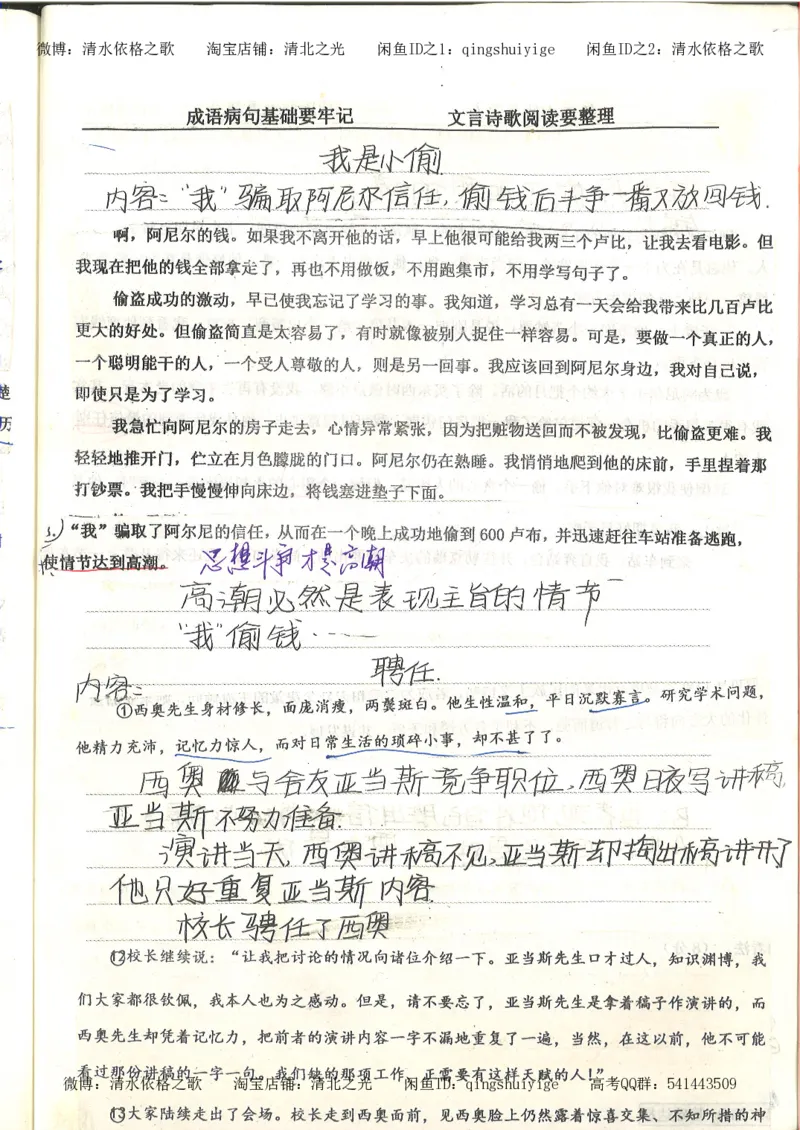 微博：清水依格之歌 淘宝店铺：清北之光 闲鱼ID之1：qingshuiyige 闲鱼ID之2：清水依格之歌
成语病句基础要牢记 文言诗歌阅读要整理
我是小偷
内容：“我”骗取阿尼尔信任，偷钱后斗争一番又放回钱.
啊，阿尼尔的钱。如果我不离开他的话，早上他很可能给我两三个卢比，让我去看电影。但
我现在把他的钱全部拿走了，再也不用做饭，不用跑集市，不用学写句子了。
偷盗成功的激动，早已使我忘记了学习的事。我知道，学习总有一天会给我带来比几百卢比
更大的好处。但偷盗简直是太容易了，有时就像被别人捉住一样容易。可是，要做一个真正的人，
一个聪明能干的人，一个受人尊敬的人，则是另一回事。我应该回到阿尼尔身边，我对自己说，
即使只是为了学习。
我急忙向阿尼尔的房子走去，心情异常紧张，因为把赃物送回而不被发现，比偷盗更难。我
轻轻地推开门，伫立在月色朦胧的门口。阿尼尔仍在熟睡。我悄悄地爬到他的床前，手里捏着那
打钞票。我把手慢慢伸向床边，将钱塞进垫子下面。
“我”骗取了阿尔尼的信任，从而在一个晚上成功地偷到 600 卢布，并迅速赶往车站准备逃跑，
使情节达到高潮。 思想斗争才是高潮
高潮必然是表现主旨的情节
“我”偷钱……
聘任.
内容：
①西奥先生身材修长，面庞消瘦，两鬓斑白。他生性温和，平日沉默寡言。研究学术问题，
他精力充沛，记忆力惊人，而对日常生活的琐碎小事，却不甚了了。
西奥与舍友亚当斯竞争职位，西奥日夜写讲稿，
亚当斯不努力准备.
演讲当天，西奥讲稿不见，亚当斯却掏出稿讲开了
他只好重复亚当斯内容.
校长聘任了西奥
⑫校长继续说：“让我把讨论的情况向诸位介绍一下。亚当斯先生口才过人，知识渊博，我
们大家都很钦佩，我本人也为之感动。但是，请不要忘了，亚当斯先生是拿着稿子作演讲的，而
西奥先生却凭着记忆力，把前者的演讲内容一字不漏地重复了一遍，当然，在这以前，他不可能
看过那份讲稿的一字一句。我们缺的那项工作，正需要有这样天赋的人！”
微博：清水依格之歌 淘宝店铺：清北之光 闲鱼ID：qingshuiyige 高考QQ群：541443509
⑬大家陆续走出了会场。校长走到西奥面前，见西奥脸上仍然露着惊喜交集、不知所措的神